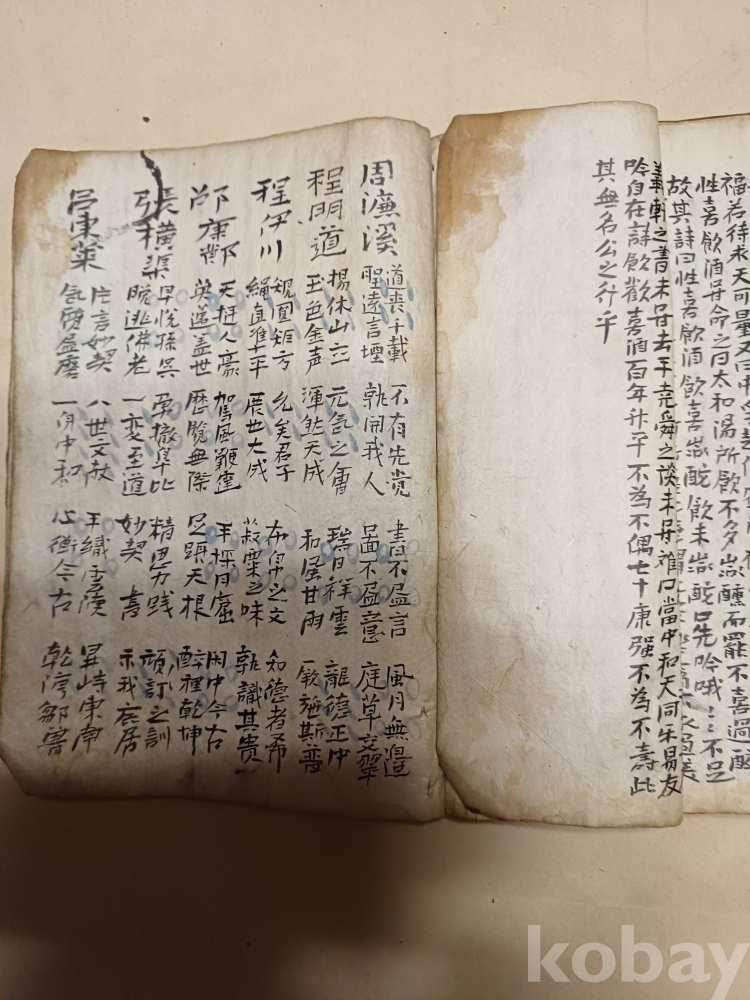 福若待求天可量又曰
性喜飮酒号命之曰太和湯所飮不多微醺而罷不喜過醺
故其詩曰性喜飮酒飮喜微酡飮未微酡口先吟哦〻〻不足
羲軒之書未号去手堯舜之談未号離口當中和天同樂易友
吟自在詩飮歡喜酒百年升平不為不偶七十康强不為不壽此
其無名公之行乎
周濂溪
道喪千載 不有先覚 書不尽言 風月無邉
聖遠言堙 孰開我人 啚不尽意 庭草交翠
程明道
揚休山立 元気之會 瑞日祥雲 龍德正中
玉色金声 渾然天成 和風甘雨 厥施斯普
程伊川
規圓矩方 允矣君子 布帛之文 知德者希
繩直準平 展世大成 菽粟之味 孰識其貴
邵康節
天挺人豪 駕風鞭霆 手探月窟 闲中今古
英邁盖世 歷覽無際 足躡天根 醉裡乾坤
張橫渠
早悅孫吳 勇撤皐比 精思力踐 頑訂之訓
晩逃佛老 一変至道 妙契 書 示我広居
呂東萊
片言妙契 八世文献 手織雲漢 昇峙東南
気質尽磨 一身中和 心衡今古 乾淳鄒魯